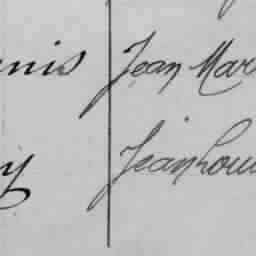 nis Jean Mar
y Jean Loui